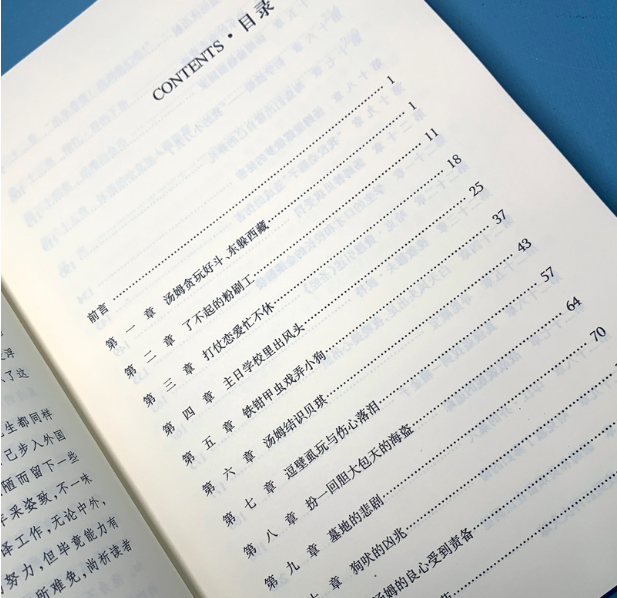 CONTENTS·目录
前言 1
第一章 汤姆贪玩好斗、东躲西藏 1
第二章 了不起的粉刷工 11
第三章 打仗恋爱忙不休 18
第四章 主日学校里出风头 25
第五章 铁钳甲虫戏弄小狗 37
第六章 汤姆结识贝琪 43
第七章 逗壁虱玩与伤心落泪 57
第八章 扮一回胆大包天的海盗 64
第九章 墓地的悲剧 70
章 狗吠的凶兆
汤姆的良心受到责备
了这
生都同样
已步入外国
陋而留下一些
采姿致,不一味
译工作,无论中外,
努力,但毕竟能力有
所难免,尚祈读者